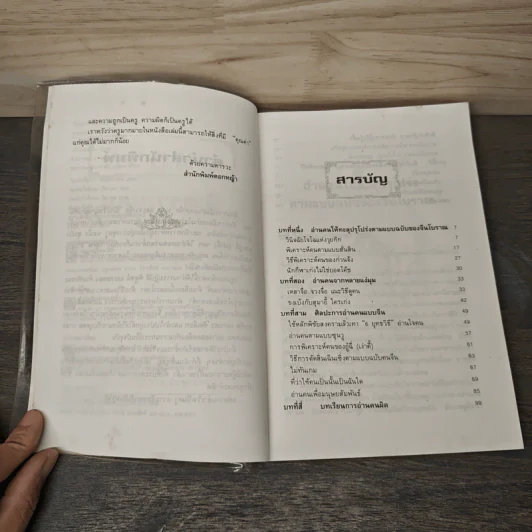 และความถูกเป็นครู ความผิดก็เป็นครูได้
เราหวังว่าครูมากมายในหนังสือเล่มนี้สามารถให้สิ่งที่มี "คุณค่า"
แก่คุณได้ไม่มากก็น้อย
ด้วยความคารวะ
สำนักพิมพ์ดอกหญ้า
สารบัญ
บทที่หนึ่ง อ่านคนให้ทะลุปรุโปร่งตามแบบฉบับของจีนโบราณ 7
วินิจฉัยใจในแห่งงุยกัก 7
พิเคราะห์คนตามแบบสั้นสิน 17
วิธีพิเคราะห์คนของก๋วนจ้ง 27
นักกีฬาเก่งไม่ใช่ยอดโค้ช 30
บทที่สอง อ่านคนจากหลายแง่มุม 33
เหลาจื๊อ จวงจื๊อ แนะวิธีดูคน 33
ขงเบ้งกับสุมาอี้ ใครเก่ง 42
บทที่สาม ศิลปะการอ่านคนแบบจีน 49
ใช้หลักพิชัยสงคราม อ่านใจคน 49
อ่านคนตามแบบซุนวู 57
การพิเคราะห์คนของอู๋ฉี่ 61
วิธีการตัดสินเฉินเซิ่งตามแบบฉบับคนจีน 63
ไม่ทันเกม 67
ที่ว่าใช้คนเป็นนั้นเป็นฉันใด 69
อ่านคนเพื่อมนุษยสัมพันธ์ 85
บทที่สี่ บทเรียนการอ่านคนผิด 99